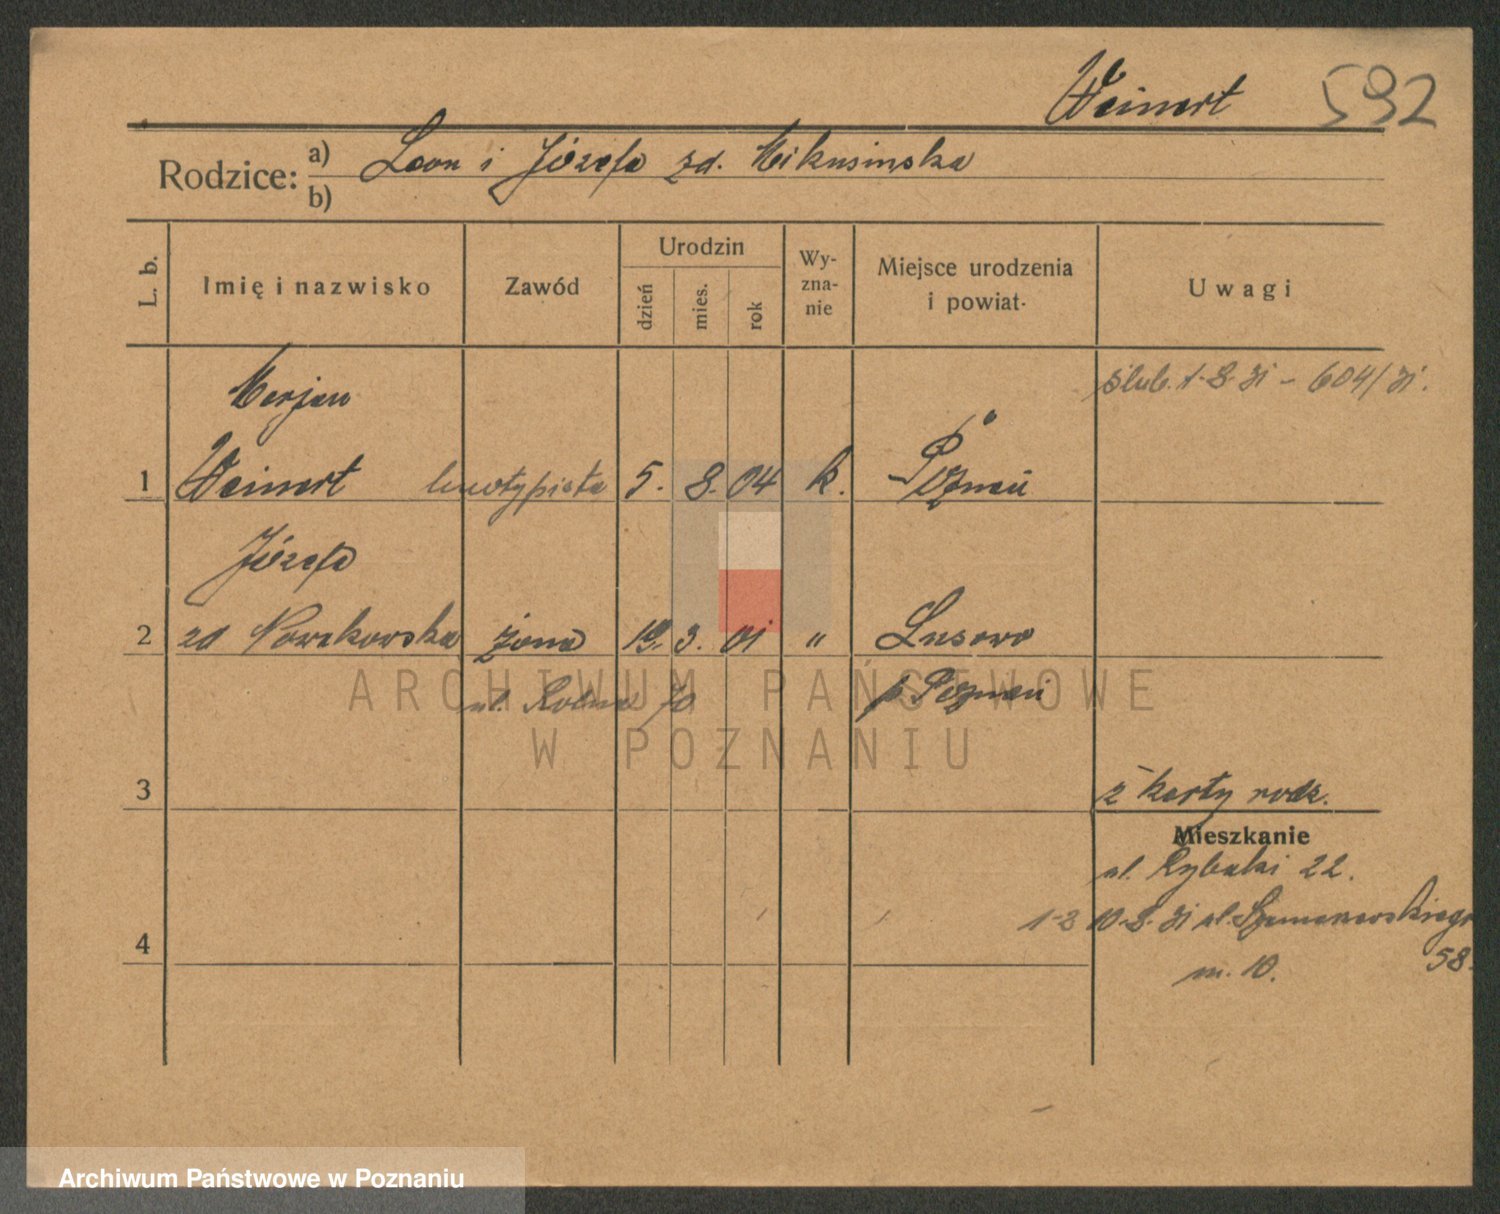 Weinert 592
Rodzice: a) Leon i Józefa zd. Mikusińska
b)
L. b. Imię i nazwisko Zawód Urodzin dzień mies. rok Wy-zna-nie Miejsce urodzenia i powiat· Uwagi
ślub. 1-8-31 - 604/31.
Marjan
1 Weinert linotypista 5. 8. 04 k. Poznań
Józefa
2 zd Nowakowska żona 19. 3. 01 " Lusowo
ul. Rolna p Poznań
ARCHIWUM PAŃSTWOWE
W POZNANIU
3 z karty rodz.
Mieszkanie
ul. Rybaki 22.
10-8-31 ul. Szamarzewskiego
4 58.
m. 10.
Archiwum Państwowe w Poznaniu